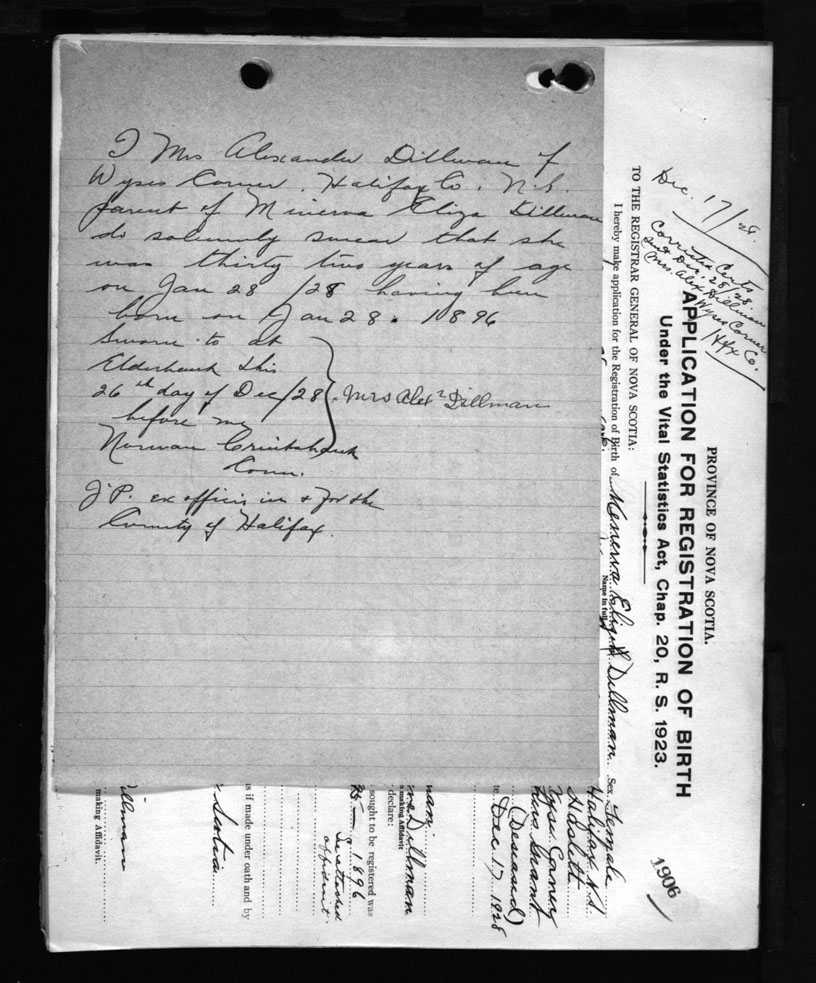 I Mrs Alexander Dillman of
Wyses Corner, Halifax Co. N.S.
parent of Minerva Eliza Dillman
do solemnly swear that she
was thirty two years of age
on Jan 28 /28 having been
born on Jan 28. 1896
Sworn to at
Elderbank this
26th day of Dec/28
before me
Mrs Alexr Dillman
Norman Cruikshank
Com.
J.P. ex officio in & for the
County of Halifax.
Dec. 17/28.
Corrected Certs
Dec. 28/28
Mrs. Alex Dillman
Wyses Corner
Hfx Co.
PROVINCE OF NOVA SCOTIA.
APPLICATION FOR REGISTRATION OF BIRTH
Under the Vital Statistics Act, Chap. 20, R. S. 1923.
TO THE REGISTRAR GENERAL OF NOVA SCOTIA:
I hereby make application for the Registration of Birth of Menerva Eliza Dillman Sex Female
Name in full
Halifax N.S.
(Deceased)
Grant
te Dec. 17 1928
Dillman
making Affidavit
declare:
sought to be registered was
1896
See attached
affidavit
is if made under oath and by
Scotia
illman
making Affidavit.
1906